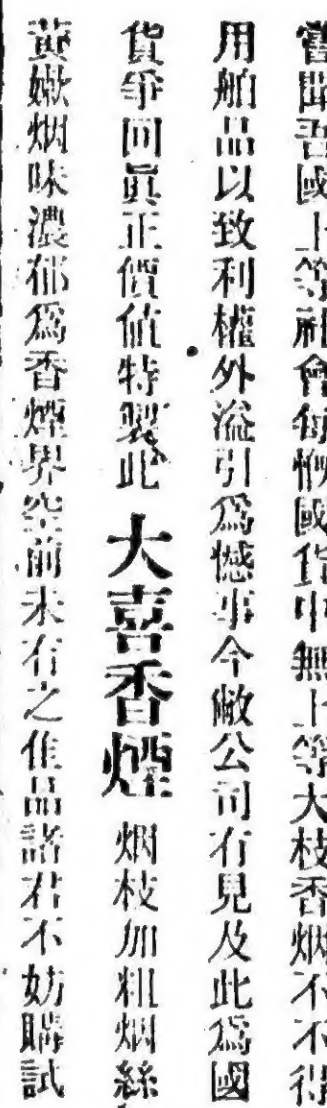 嘗聞吾國上等社會每慨國貨中無上等大枝香烟不不得
用舶品以致利權外溢引爲憾事今敝公司有見及此爲國
貨爭回眞正價值特製此大喜香煙烟枝加粗烟絲
黃嫩烟味濃郁爲香煙界空前未有之佳品諸君不妨購試